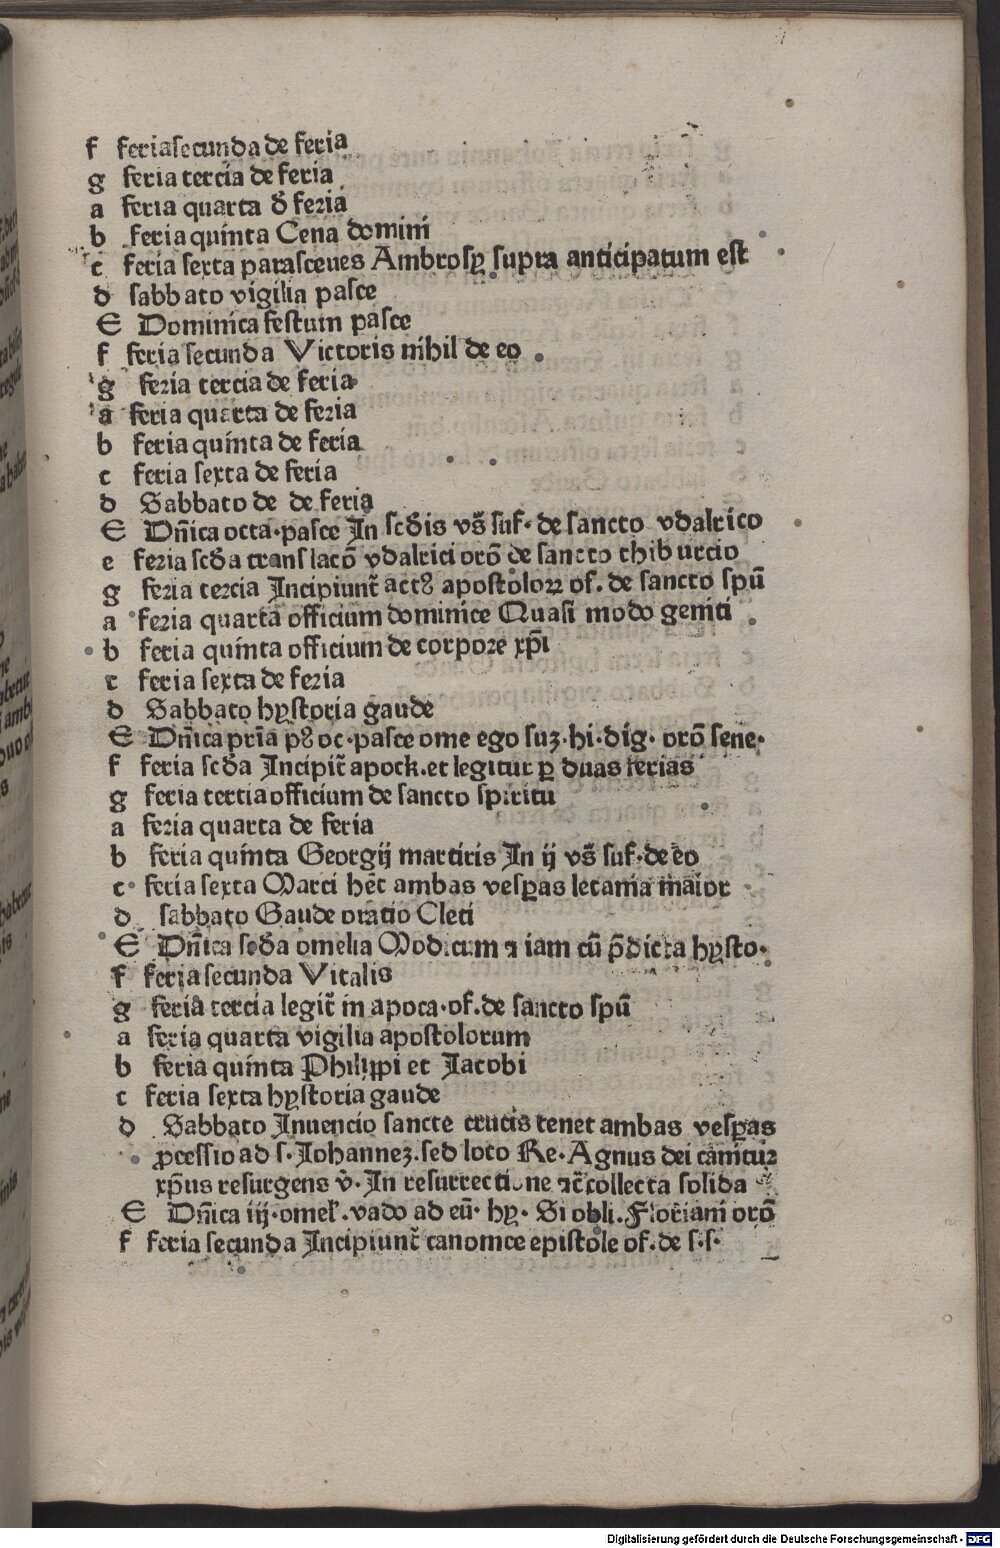 f feria secunda de feria
g feria tercia de feria
a feria quarta đ feria
b feria quinta Cena domini
c feria sexta parasceues Ambrosÿ supra anticipatum est
d sabbato vigilia pasce
E Dominica festum pasce
f feria secunda Victoris nihil de eo
g feria tercia de feria
a feria quarta de feria
b feria quinta de feria
c feria sexta de feria
d Sabbato de de feria
E Dn̄ica octa·pasce In scđis vs̄ suf·de sancto vdalrico
e feria scđa translacō vdalrici orō de sancto thiburcio
g feria tercia Incipiunt̄ actꝰ apostoloꝝ of. de sancto spū
a feria quarta officium dominice Quasi modo geniti
b feria quinta officium de corpore xp̄i
c feria sexta de feria
d Sabbato hystoria gaude
E Dn̄ica pria pꝰ oc·pasce ome ego suꝫ·hi·dig·orō sene·
f feria scđa Incipit̄ apock.et legitur ꝑ duas ferias
g feria tertia officium de sancto spiritu
a feria quarta de feria
b feria quinta Georgij martiris In ij vs̄ suf·de eo
c feria sexta Marci hēt ambas vesꝑas letania maior
d sabbato Gaude oratio Cleti
E Dn̄ica scđa omelia Modicum ⁊ iam cū p̄dicta hysto·
f feria secunda Vitalis
g feria tercia legit̄ in apoca·of.de sancto spū
a feria quarta vigilia apostolorum
b feria quinta Philippi et Jacobi
c feria sexta hystoria gaude
d Sabbato Inuencio sancte crucis tenet ambas vesꝑas
ꝓcessio ad s·Iohanneꝫ.sed loco Re·Agnus dei canitur
xp̄us resurgens v̄·In resurrectione ⁊c̄ collecta solida
E Dn̄ica iij·omel̄.vado ad eū·hy·Si obli.Floriani orō
f feria secunda Incipiunt̄ canonice epistole of.de s·s·
Digitalisierung gefördert durch die Deutsche Forschungsgemeinschaft - DFG